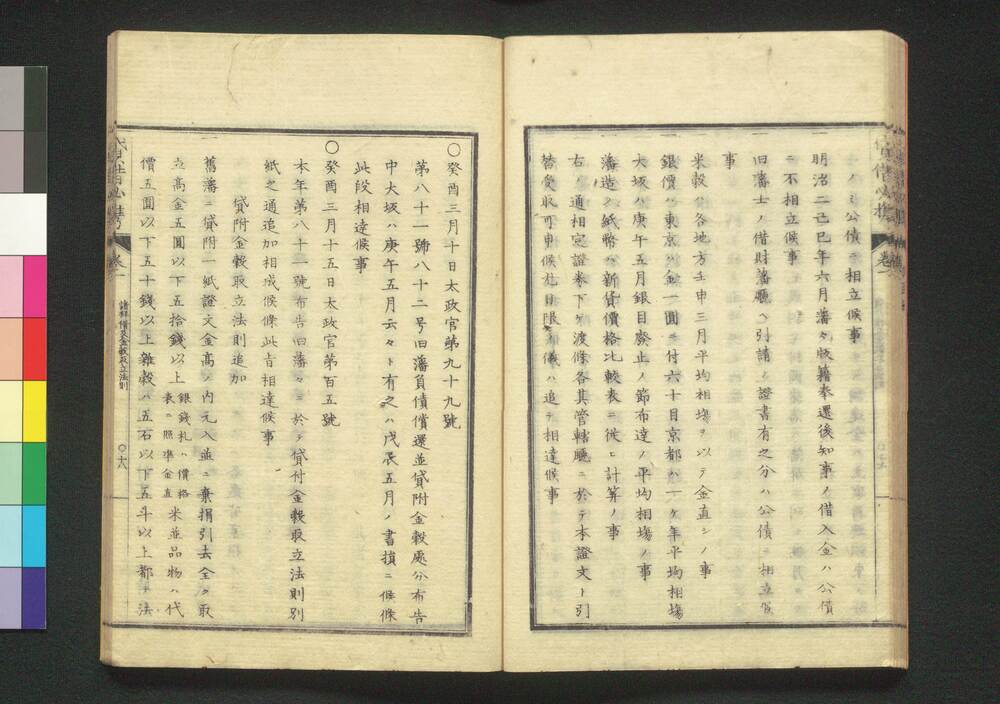 モノハ公債ニ相立候事
明治二己巳年六月藩々版籍奉還後知事ノ借入金ハ公債
ニ不相立候事
旧藩士ノ借財藩聴ヘ引請ノ證書有之分ハ公債ニ相立候
事
米穀ハ各地方壬申三月平均相場ヲ以テ金直シノ事
銀價ハ東京ハ金一圓ニ付六十目京都ハ一ケ年平均相塲
大坂ハ庚午五月銀目廢止ノ節布達ノ平均相塲ノ事
藩造ノ紙幣ハ新貨價格比較表ニ従ヒ計算ノ事
右ノ通相定證券下ケ渡候条各其管轄聴ニ於テ本證文ト引
替受取可申候尤日限ノ儀ハ追テ相達候事
〇癸酉三月十日太政官第九十九號
第八十一號八十二号旧藩負債償還並貸附金穀處分布告
中大坂ハ庚午五月云々ト有之ハ戊辰五月ノ書損ニ候條
此段相達候事
〇癸酉三月十五日太政官第百五號
本年第八十二號布告旧藩々ニ於テ貸付金穀取立法則別
紙之通追加相成候條此旨相達候事
貸附金穀取立法則追加
舊藩ニ貸附一紙證文金高ノ内元入並ニ棄捐引去全ク取
立高金五圓以下五拾錢以上
銀錢札ハ價格
表ニ照準金直
米並品物ハ代
價五圓以下五十錢以上雜穀ハ五石以下五斗以上都テ法
貸借必携
卷一
諸舊藩債及金穀取立法則
〇十八